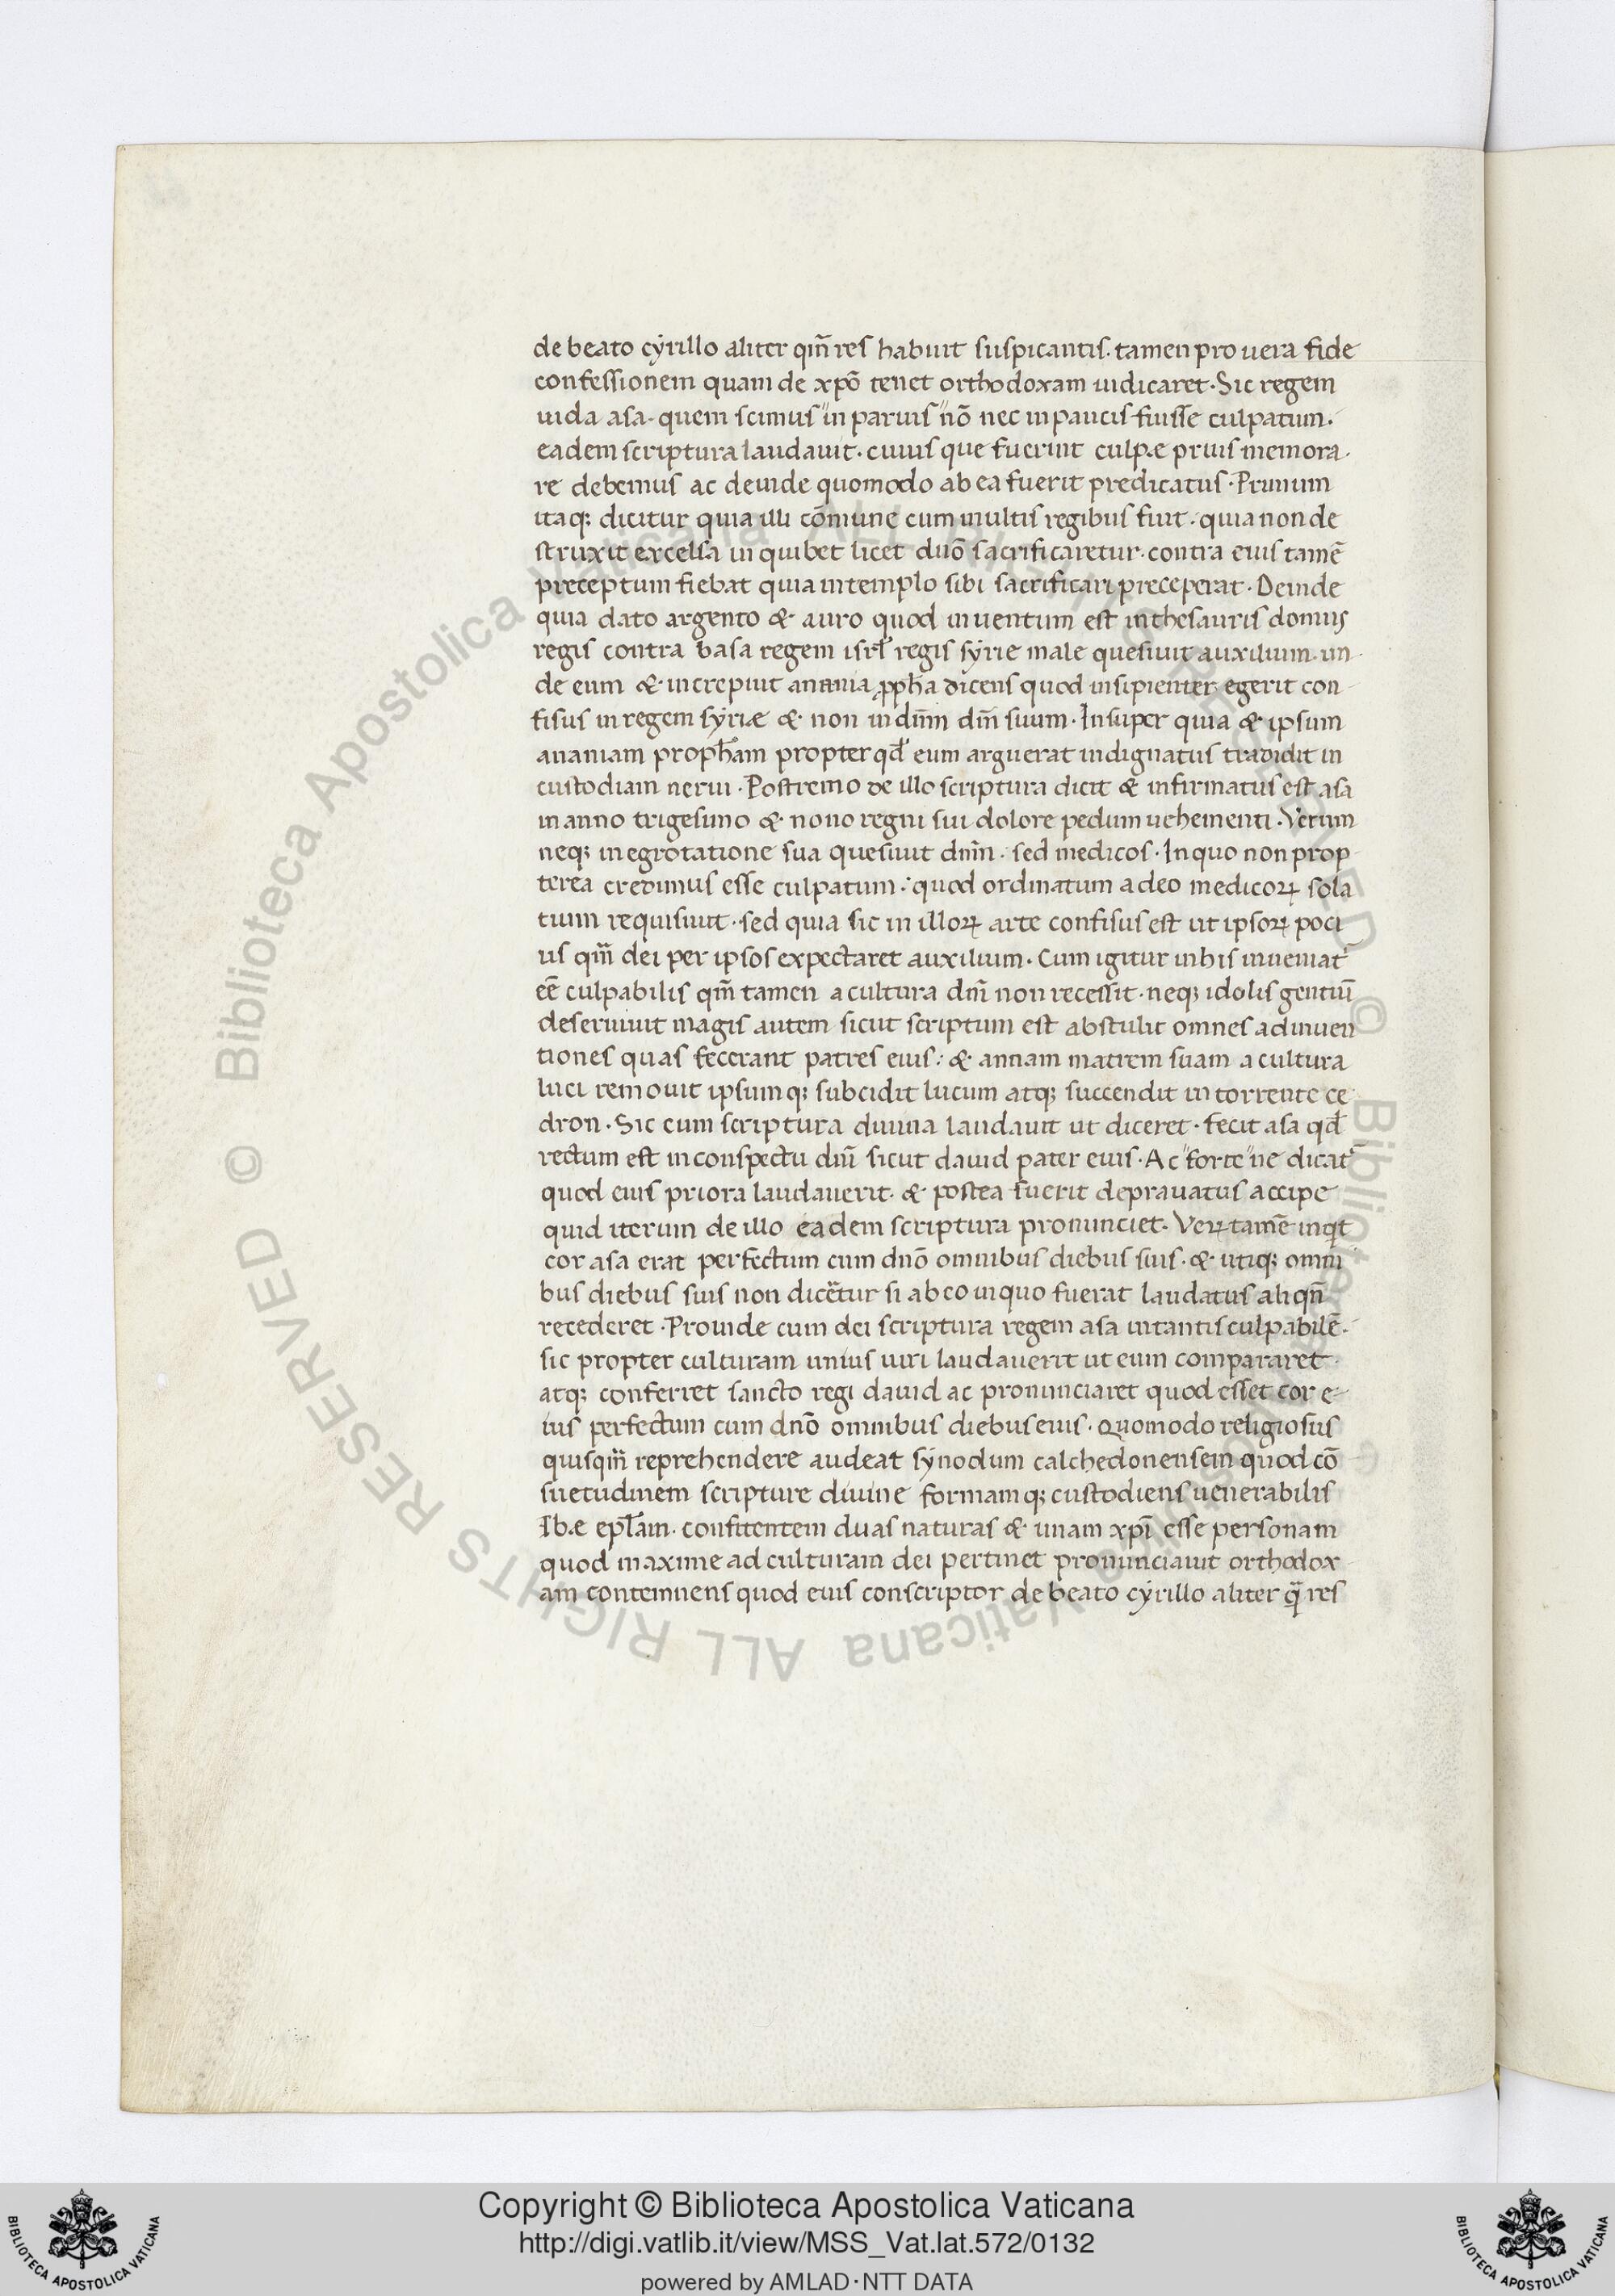 de beato cyrillo aliter qm̄ res habuit suspicantis. tamen pro uera fide
confessionem quam de xpō tenet orthodoxam iudicaret. Sic regem
iuda asa. quem scimus "in paruis" nō nec in paucis fuisse culpatum.
eadem scriptura laudauit. cuius que fuerint culpæ prius memora-
re debemus ac deinde quomodo ab ea fuerit predicatus. Primum
itaq; dicitur quia illi cōmune cum multis regibus fuit. quia non de
struxit excelsa in quibet licet duō sacrificaretur. contra eius tamē
preceptum fiebat quia in templo sibi sacrificari preceperat. Deinde
quia dato argento & auro quod inuentum est in thesauris domus
regis contra basa regem isrl̄ regis syrie male quesiuit auxilium. un-
de eum & increpuit anania ꝓph̄a dicens quod insipienter egerit con-
fisus in regem syriæ & non in dn̄m dm̄ suum. Insuper quia & ipsum
ananiam proph̄am propter qd̄ eum arguerat indignatus tradidit in
custodiam nerui. Postremo de illo scriptura dicit & infirmatus est asa
in anno trigesimo & nono regni sui dolore pedum uehementi. Verum
neq; in egrotatione sua quesiuit dn̄m. sed medicos. In quo non prop-
terea credimus esse culpatum: quod ordinatum a deo medicoꝝ sola
tium requisiuit. sed quia sic in illoꝝ arte confisus est ut ipsoꝝ poci
us qm̄ dei per ipsos expectaret auxilium. Cum igitur in his inueniat᷑
eē culpabilis qm̄ tamen a cultura dn̄i non recessit. neq; idolis gentiū
deseruiuit magis autem sicut scriptum est abstulit omnes adinuen
tiones quas fecerant patres eius: & annam matrem suam a cultura
luci remouit ipsumq; subcidit lucum atq; succendit in torrente ce
dron. Sic eum scriptura diuina laudauit ut diceret. fecit asa qd̄
rectum est in conspectu dn̄i sicut dauid pater eius. Ac "forte" ne dicat᷑
quod eius priora laudauerit. & postea fuerit deprauatus accipe
quid iterum de illo eadem scriptura pronunciet. Veꝝtamē inqt
cor asa erat perfectum cum dnō omnibus diebus suis. & utiq; omni
bus diebus suis non dicētur si ab eo in quo fuerat laudatus aliqn̄
recederet. Proinde cum dei scriptura regem asa in tantis culpabilē.
sic propter culturam unius uiri laudauerit ut eum compararet
atq; conferret sancto regi dauid ac pronunciaret quod esset cor e-
ius perfectum cum dnō omnibus diebus eius. Quomodo religiosus
quisqm̄ reprehendere audeat synodum calchedonensem quod cō
suetudinem scripture diuine formamq; custodiens uenerabilis
Ibæ epl̄am. confitentem duas naturas & unam xpī esse personam
quod maxime ad culturam dei pertinet pronunciauit orthodox
am contemnens quod eius conscriptor de beato cyrillo aliter qͣ res
© Biblioteca Apostolica Vaticana ALL RIGHTS RESERVED
© Biblioteca Apostolica Vaticana ALL RIGHTS RESERVED
BIBLIOTECA APOSTOLICA VATICANA
Copyright © Biblioteca Apostolica Vaticana
http://digi.vatlib.it/view/MSS_Vat.lat.572/0132
powered by AMLAD · NTT DATA
BIBLIOTECA APOSTOLICA VATICANA